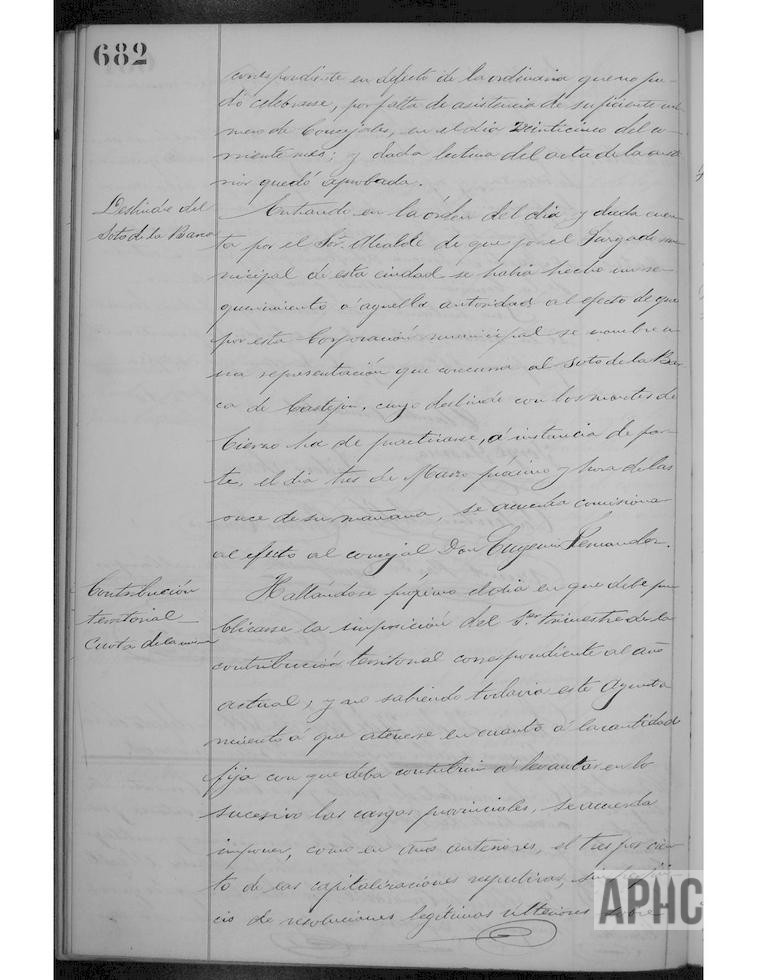 682
correspondiente en defecto de la ordinaria que no pu-
do celebrarse, por falta de asistencia de suficiente nú-
mero de Concejales, en el día veinticinco del co-
rriente mes; y dada lectura del acta de la ante-
rior quedó aprobada.
Deslinde del
Soto de la Barca
Entrando en la órden del día y dada cuen-
ta por el Sor. Alcalde de que por el Juzgado mu-
nicipal de esta ciudad se habia hecho un re-
querimiento á aquella autoridad al efecto de que
por esta Corporación municipal se nombre u-
na representación que concurra al Soto de la Bar-
ca de Castejon, cuyo deslinde con los montes de
Cierzo ha de practicarse, á instancia de par-
te, el dia tres de Marzo próximo y hora de las
once de su mañana, se acuerda comisionar
al efecto al concejal Don Eugenio Fernandez.
Contribución
territorial
Cuota de la misma
Hallándose próximo el dia en que debe pu-
blicarse la imposición del 1er. trimestre de la
contribución territorial correspondiente al año
actual, y no sabiendo todavia este Ayunta-
miento á que atenerse en cuanto á la cantidad
fija con que deba contribuir á levantar en lo
sucesivo las cargas provinciales, se acuerda
imponer, como en años anteriores, el tres por cien-
to de las capitalizaciones respectivas, sin perjui-
cio de resoluciones legítimas ulteriores sobre
APHC